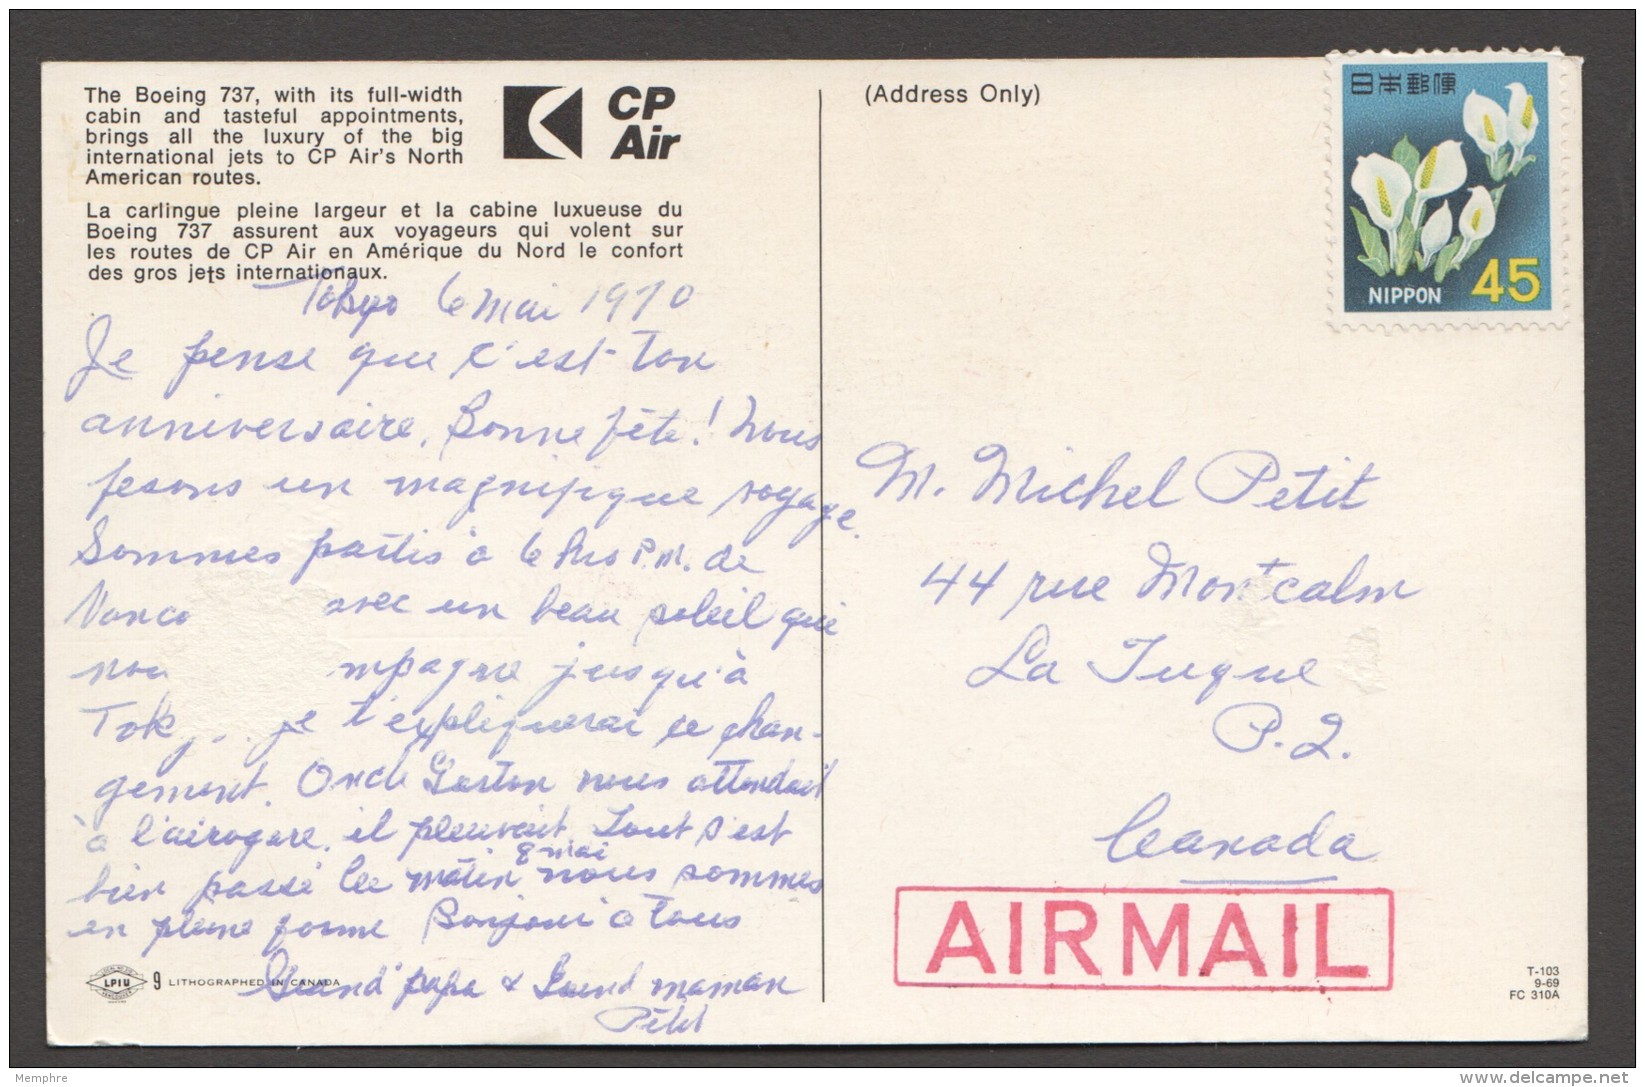 The Boeing 737, with its full-width
cabin and tasteful appointments,
brings all the luxury of the big
international jets to CP Air's North
American routes.
CP
Air
La carlingue pleine largeur et la cabine luxueuse du
Boeing 737 assurent aux voyageurs qui volent sur
les routes de CP Air en Amérique du Nord le confort
des gros jets internationaux.
Tokyo 6 mai 1970
Je pense que c'est ton
anniversaire. Bonne fête! Nous
fesons un magnifique voyage.
Sommes partis à 6 hrs P.M. de
Vanco avec un beau soleil qui
nou mpagne jusqu'à
Tok je t'expliquerai ce chan-
gement. Oncle Gaston nous attendait
à l'airogare. il pleuvait. Tout s'est
bien passé. Ce matin 8 mai nous sommes
en pleine forme Bonjour à tous
Grand'papa & Grand maman
Petit
LPIU
9 LITHOGRAPHED IN CANADA
(Address Only)
日本郵便
NIPPON 45
M. Michel Petit
44 rue Montcalm
La Tuque
P.Q.
Canada
AIRMAIL
T-103
9-69
FC 310A
Memphre
delcampe.net